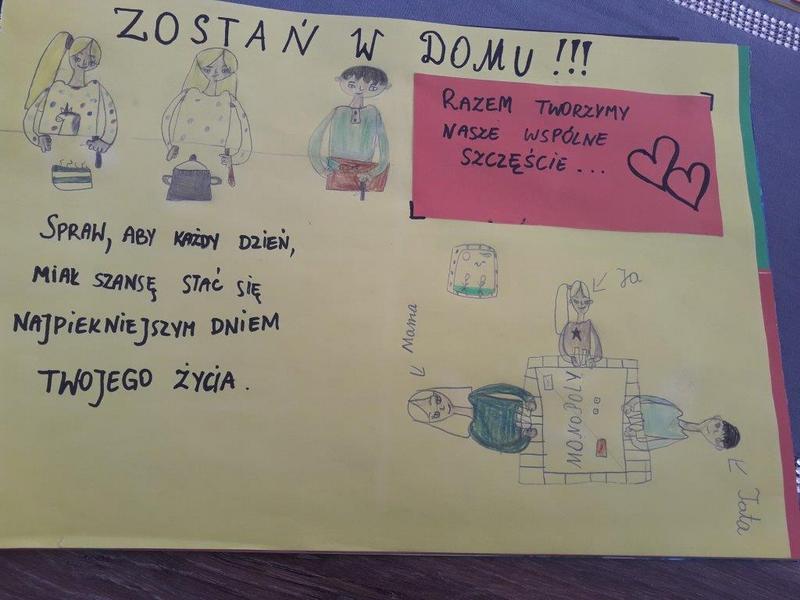 ZOSTAŃ W DOMU !!!
RAZEM TWORZYMY
NASZE WSPÓLNE
SZCZĘŚCIE...
SPRAW, ABY KAŻDY DZIEŃ,
MIAŁ SZANSĘ STAĆ SIĘ
NAJPIEKNIEJSZYM DNIEM
TWOJEGO ŻYCIA.
Ja
Mama
MONOPOLY
Tata